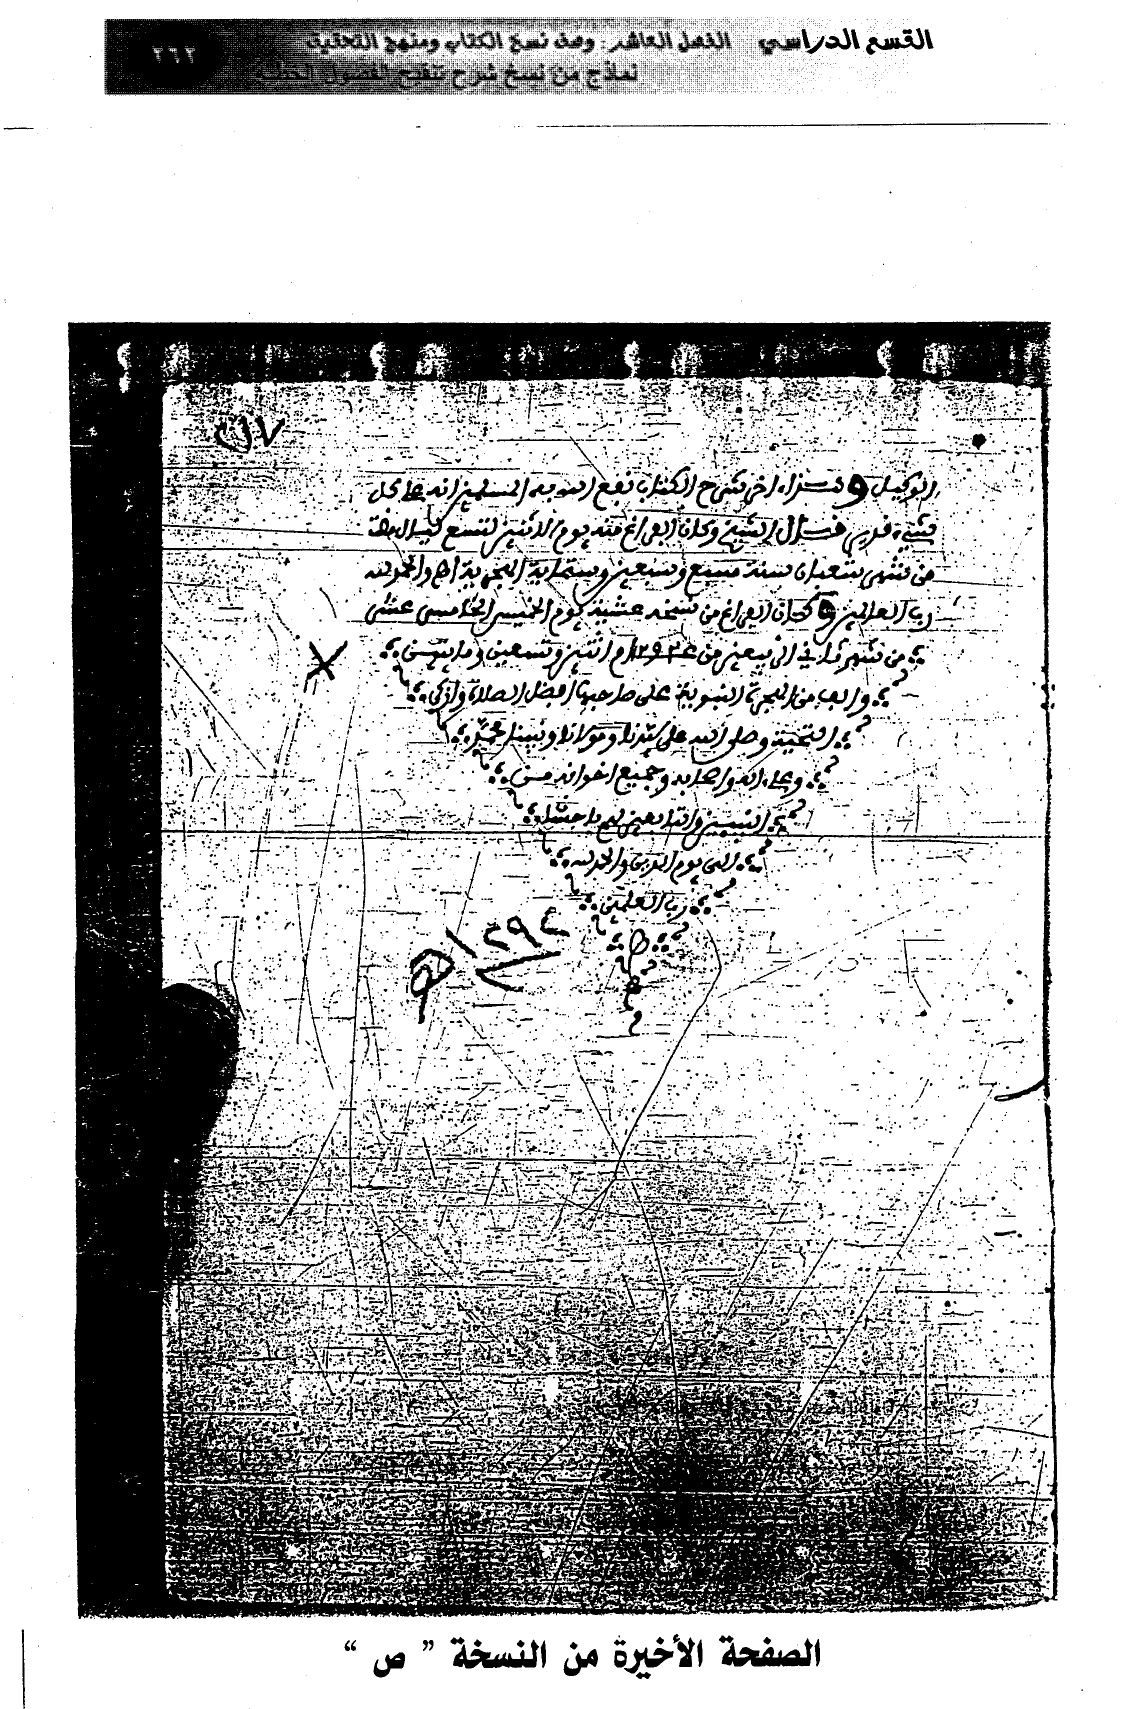 القسم الدراسي الفصل العاشر: وصف نسخ الكتاب ومنهج التحقيق
٢٦٢
نماذج من نسخ شرح تنقيح الفصول الخطية
الوكيل وهذا اخر شرح الكتاب نفع الله به المسلمين انه على كل
شيء قدير قال الشيخ وكان الفراغ منه يوم الاثنين لتسع ليال خلت
من شهر شعبان سنة سبع وسبعين وستماية الهجرية اهـ والحمد لله
رب العالمين وكان الفراغ من نسخه عشية يوم الخميس الخامس عشر
من شهر ثاني الربيعين من عام اثنين وتسعين ومايتين
والف من الهجرة النبوية على صاحبها افضل الصلاة وازكى
التحية وصلى الله على سيدنا ومولانا ونبينا محمد
وعلى اله واصحابه وجميع اخوانه من
النبيين والتابعين لهم باحسان
الى يوم الدين والحمد لله
رب العلمين
الصفحة الأخيرة من النسخة " ص "